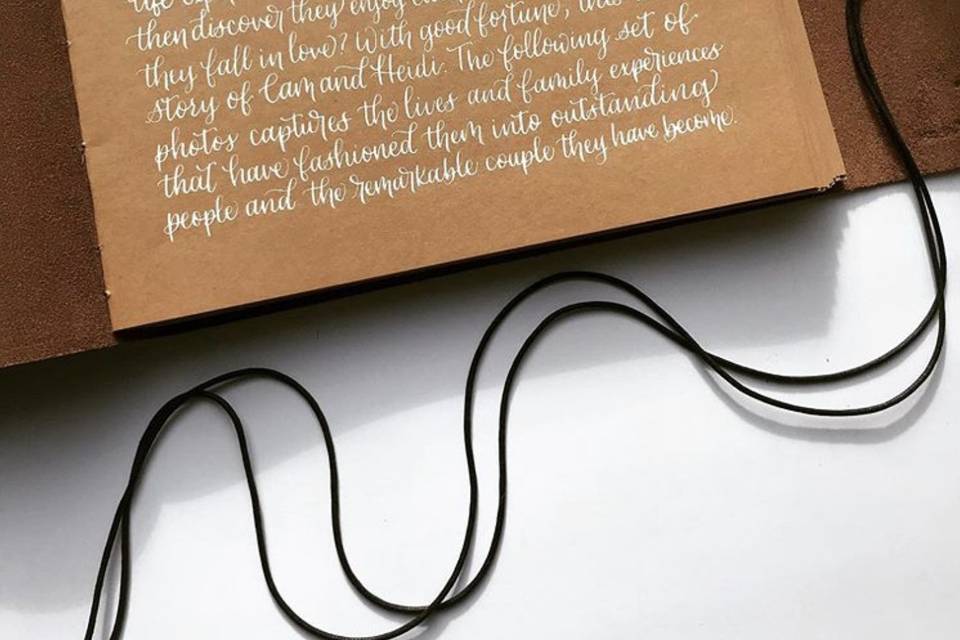 life
then discover they enjoy
they fall in love? With good fortune, this
story of Cam and Heidi. The following set of
photos captures the lives and family experiences
that have fashioned them into outstanding
people and the remarkable couple they have become.